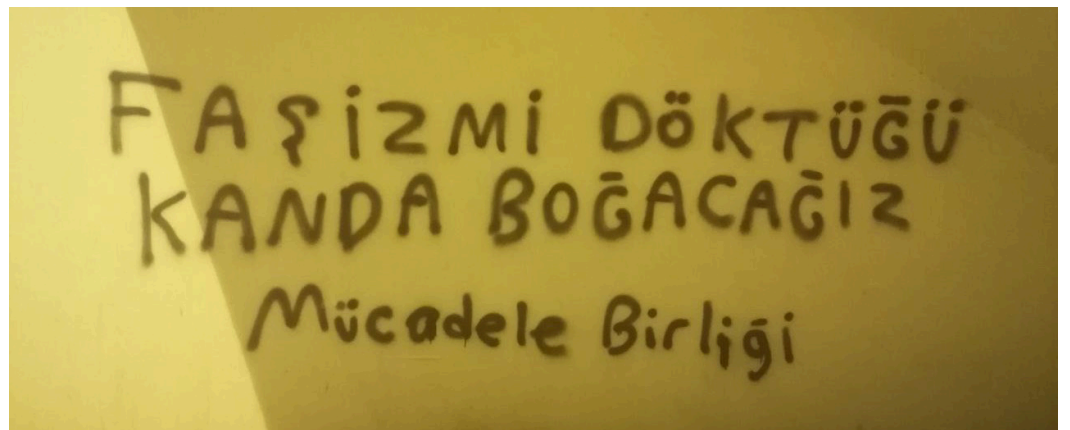 FAŞİZMİ DÖKTÜĞÜ
KANDA BOĞACAĞIZ
Mücadele Birliği